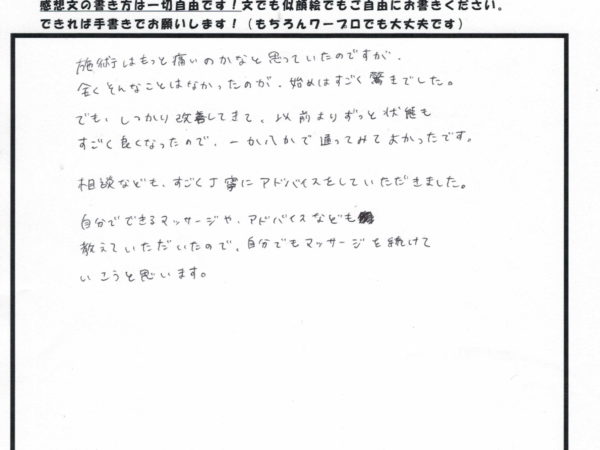 感想文の書き方は一切自由です！文でも似顔絵でもご自由にお書きください。
できれば手書きでお願いします！（もちろんワープロでも大丈夫です）
施術はもっと痛いのかなと思っていたのですが、
全くそんなことはなかったのが、始めはすごく驚きでした。
でも、しっかり改善してきて、以前よりずっと状態も
すごく良くなったので、一か八かで通ってみてよかったです。
相談なども、すごく丁寧にアドバイスをしていただきました。
自分でできるマッサージや、アドバイスなども
教えていただいたので、自分でもマッサージを続けて
いこうと思います。